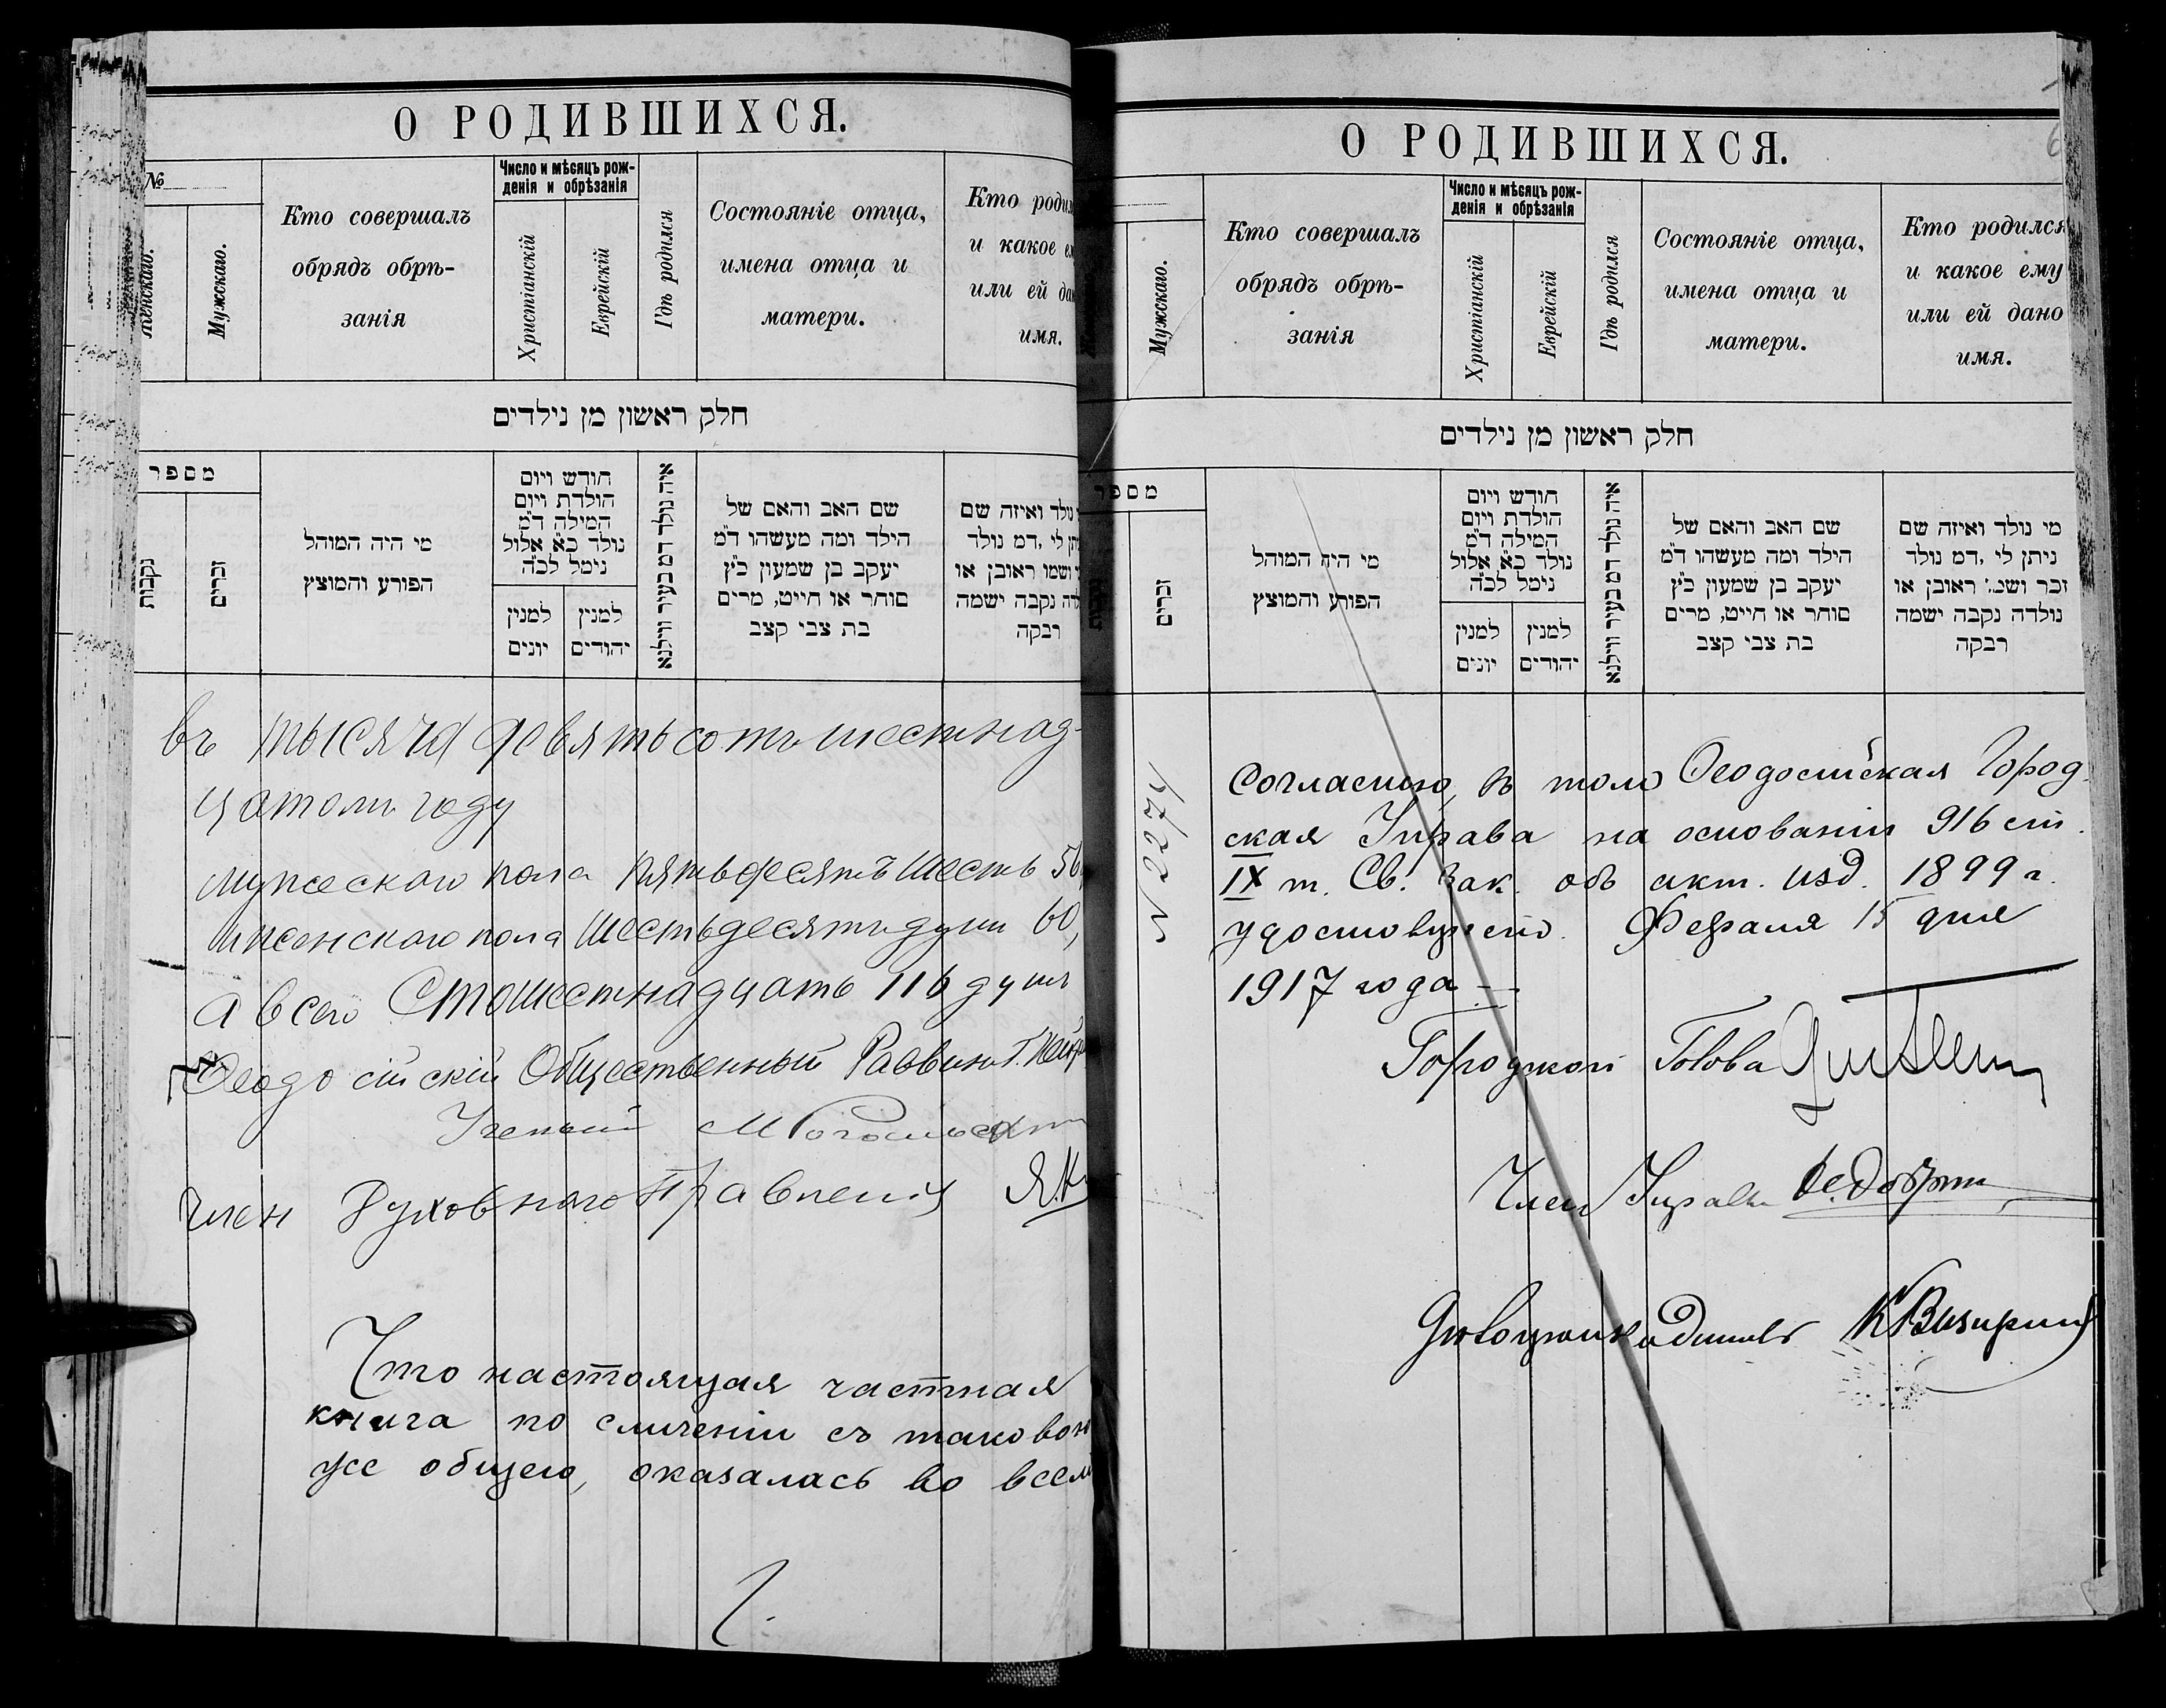 О РОДИВШИХСЯ.
№
Женскаго.
Мужскаго.
Кто совершалъ
обрядъ обрѣ-
занія
Число и мѣсяцъ рож-
денія и обрѣзанія
Христіанскій
Еврейскій
Гдѣ родился
Состояніе отца,
имена отца и
матери.
Кто
и какое
или ей
имя.
חלק ראשון מן נילדים
מספר
נקבות
זכרים
מי היה המוהל
הפורע והמוצץ
חודש ויום
הולדת ויום
המילה ד"מ
נולד כ"א אלול
נימל לכ"ה
למנין
יונים
למנין
יהודים
איה נולד דמ בעיר ווילנא
שם האב והאם של
הילד ומה מעשהו ד"מ
יעקב בן שמעון כ"ץ
סוחר או חייט, מרים
בת צבי קצב
נולד ואיזה שם
לי ,דמ נולד
ושמו ראובן או
נקבה ישמה
רבקה
въ тысяча девятьсотъ шестнад-
цатомъ году
мужескаго пола пятьдесятъ шесть 56,
женскаго пола шестьдесятъ душъ 60,
а всего Стошестнадцать 116 душъ
Ѳеодосійскій Общественный Раввинъ
Ученый М
Членъ Духовнаго Правленія
Что настоящая частная
книга по сличеніи съ таковою
же общею, оказалась во всемъ
О РОДИВШИХСЯ.
6
Мужскаго.
Кто совершалъ
обрядъ обрѣ-
занія
Число и мѣсяцъ рож-
денія и обрѣзанія
Христіанскій
Еврейскій
Гдѣ родился
Состояніе отца,
имена отца и
матери.
Кто родился
и какое ему
или ей дано
имя.
חלק ראשון מן נילדים
מספר
זכרים
מי היה המוהל
הפורע והמוצץ
חודש ויום
הולדת ויום
המילה ד"מ
נולד כ"א אלול
נימל לכ"ה
למנין
יונים
למנין
יהודים
איה נולד דמ בעיר ווילנא
שם האב והאם של
הילד ומה מעשהו ד"מ
יעקב בן שמעון כ"ץ
סוחר או חייט, מרים
בת צבי קצב
מי נולד ואיזה שם
ניתן לי ,דמ נולד
זכר ושמו ראובן או
נולדה נקבה ישמה
רבקה
Согласною, въ томъ Ѳеодосійская Город-
ская Управа на основаніи 916 ст.
IX т. Св. Зак. объ акт. изд. 1899 г.
удостовѣряетъ. Февраля 15 дня
1917 года
Городской Голова
Членъ Управы
Дѣлопроизводитель